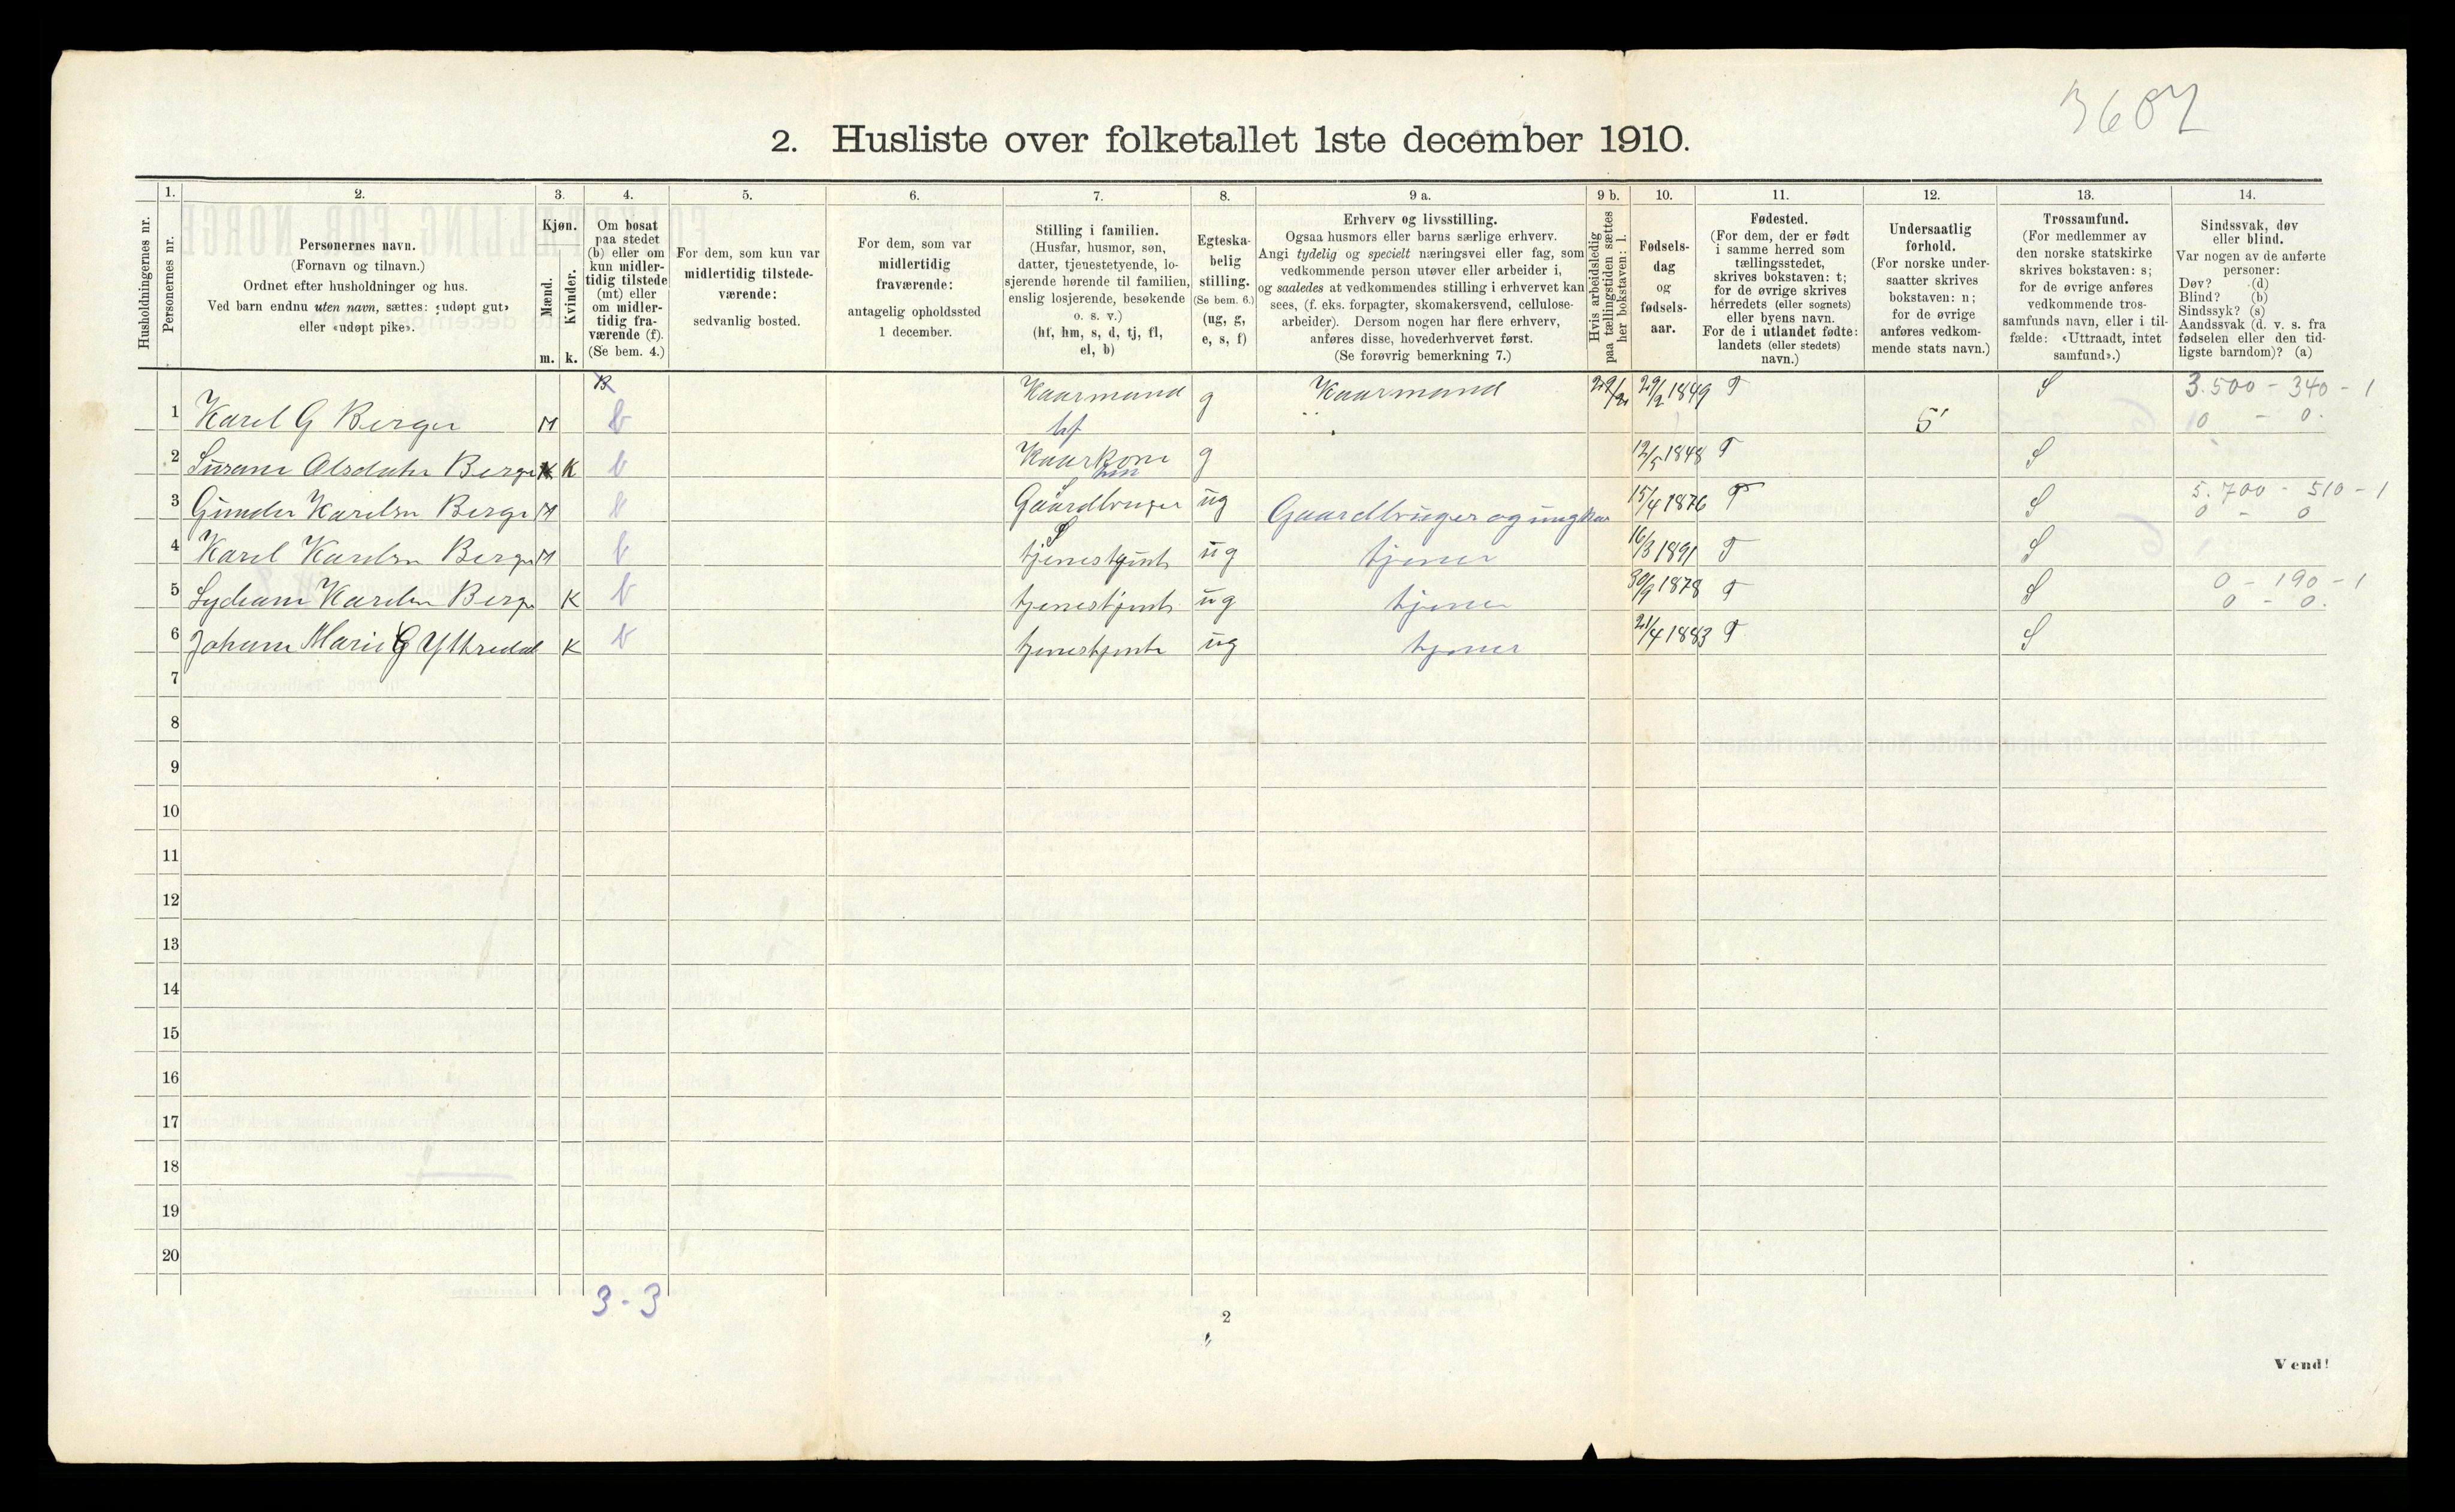 3607
2. Husliste over folketallet 1ste december 1910.
Husholdningernes nr.
1.
Personernes nr.
2.
Personernes navn.
(Fornavn og tilnavn.)
Ordnet efter husholdninger og hus.
Ved barn endnu uten navn, sættes: «udøpt gut»
eller «udøpt pike».
3.
Kjøn.
Mænd.
Kvinder.
m. k.
4.
Om bosat
paa stedet
(b) eller om
kun midler-
tidig tilstede
(mt) eller
om midler-
tidig fra-
værende (f).
(Se bem. 4.)
5.
For dem, som kun var
midlertidig tilstede-
værende:
sedvanlig bosted.
6.
For dem, som var
midlertidig
fraværende:
antagelig opholdssted
1 december.
7.
Stilling i familien.
(Husfar, husmor, søn,
datter, tjenestetyende, lo-
sjerende hørende til familien,
enslig losjerende, besøkende
o. s. v.)
(hf, hm, s, d, tj, fl,
el, b)
8.
Egteska-
belig
stilling.
(Se bem. 6.)
(ug, g,
e, s, f)
9 a.
Erhverv og livsstilling.
Ogsaa husmors eller barns særlige erhverv.
Angi tydelig og specielt næringsvei eller fag, som
vedkommende person utøver eller arbeider i,
og saaledes at vedkommendes stilling i erhvervet kan
sees, (f. eks. forpagter, skomakersvend, cellulose-
arbeider). Dersom nogen har flere erhverv,
anføres disse, hovederhvervet først.
(Se forøvrig bemerkning 7.)
9 b.
Hvis arbeidsledig
paa tællingstiden sættes
her bokstaven: l.
10.
Fødsels-
dag
og
fødsels-
aar.
11.
Fødested.
(For dem, der er født
i samme herred som
tællingsstedet,
skrives bokstaven: t;
for de øvrige skrives
herredets (eller sognets)
eller byens navn.
For de i utlandet fødte:
landets (eller stedets)
navn.)
12.
Undersaatlig
forhold.
(For norske under-
saatter skrives
bokstaven: n;
for de øvrige
anføres vedkom-
mende stats navn.)
13.
Trossamfund.
(For medlemmer av
den norske statskirke
skrives bokstaven: s;
for de øvrige anføres
vedkommende tros-
samfunds navn, eller i til-
fælde: «Uttraadt, intet
samfund».)
14.
Sindssvak, døv
eller blind.
Var nogen av de anførte
personer:
Døv? (d)
Blind? (b)
Sindssyk? (s)
Aandssvak (d. v. s. fra
fødselen eller den tid-
ligste barndom)? (a)
1 Karel G Berge M B b Kaarmand hf g Kaarmand 29/2 29/2 1849 T 5 S 3.500 - 340 - 1
10 - 0.
2 Berge K b Kaarkone hm g 12/5 1848 T S
3 Gunder Karelsn Berge M b S Gaardbruger ug Gaardbruger og ungkar 15/4 1876 T S 5.700 - 510 - 1
0 - 0
4 Karel Karelsn Berge M b S ug tjener 16/3 1891 T S
5 Karelsn Berge K b tjenestjente ug tjener 30/9 1878 T S 0 - 190 - 1
0 - 0.
6 Johane Marie G Yttredal K b tjenestjente ug tjener 21/4 1883 T S
7
8
9
10
11
12
13
14
15
16
17
18
19
20
3 - 3
2
Vend!